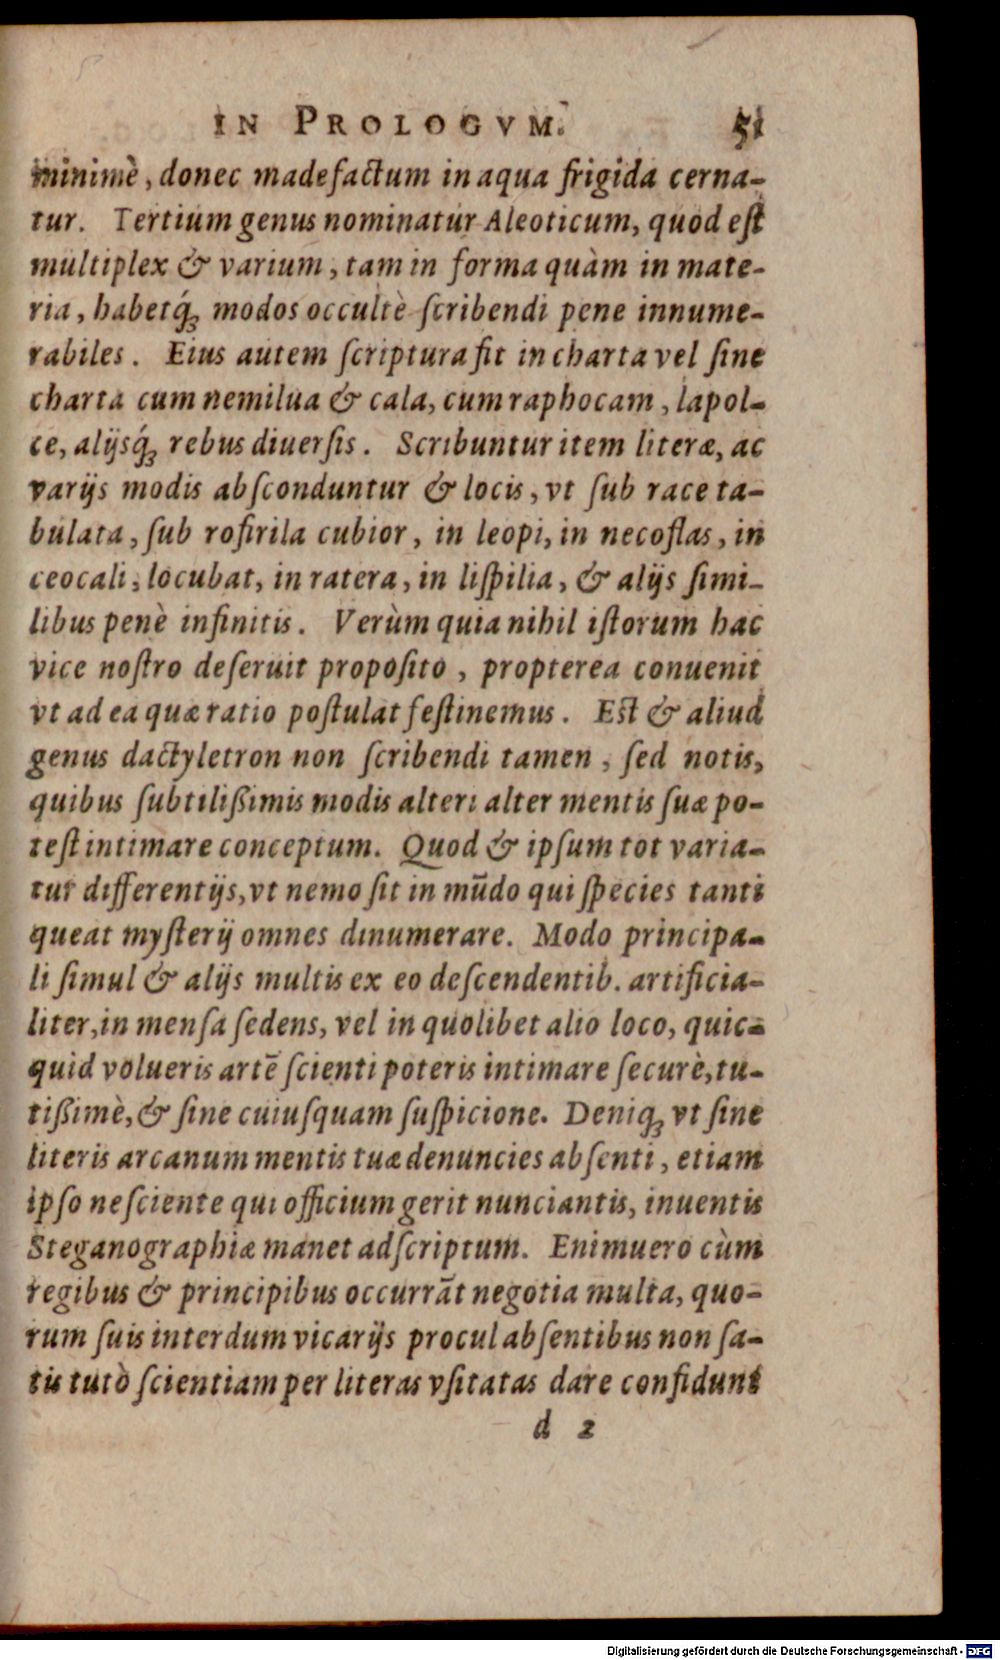 IN PROLOGVM. 51
minimè, donec madefactum in aqua frigida cerna-
tur. Tertium genus nominatur Aleoticum, quod eſt
multiplex & varium, tam in forma quàm in mate-
ria, habetq́; modos occultè ſcribendi pene innume-
rabiles. Eius autem ſcriptura fit in charta vel ſine
charta cum nemilua & cala, cum raphocam, lapol-
ce, alijsq́; rebus diuerſis. Scribuntur item literæ, ac
varijs modis abſconduntur & locis, vt ſub race ta-
bulata, ſub rofirila cubior, in leopi, in necoflas, in
ceocali, locubat, in ratera, in liſpilia, & alijs ſimi-
libus penè infinitis. Verùm quia nihil iſtorum hac
vice noſtro deſeruit propoſito, propterea conuenit
vt ad ea quæ ratio poſtulat feſtinemus. Eſt & aliud
genus dactyletron non ſcribendi tamen, ſed notis,
quibus ſubtilißimis modis alteri alter mentis ſuæ po-
teſt intimare conceptum. Quod & ipſum tot varia-
tur differentijs, vt nemo ſit in mūdo qui ſpecies tanti
queat myſterij omnes dinumerare. Modo principa-
li ſimul & alijs multis ex eo deſcendentib. artificia-
liter, in menſa ſedens, vel in quolibet alio loco, quic-
quid volueris artē ſcienti poteris intimare ſecurè, tu-
tißimè, & ſine cuiuſquam ſuſpicione. Deniq; vt ſine
literis arcanum mentis tuæ denuncies abſenti, etiam
ipſo neſciente qui officium gerit nunciantis, inuentis
Steganographiæ manet adſcriptum. Enimuero cùm
regibus & principibus occurrāt negotia multa, quo-
rum ſuis interdum vicarijs procul abſentibus non ſa-
tis tutò ſcientiam per literas vſitatas dare confidunt
d 2
Digitalisierung gefördert durch die Deutsche Forschungsgemeinschaft - DFG